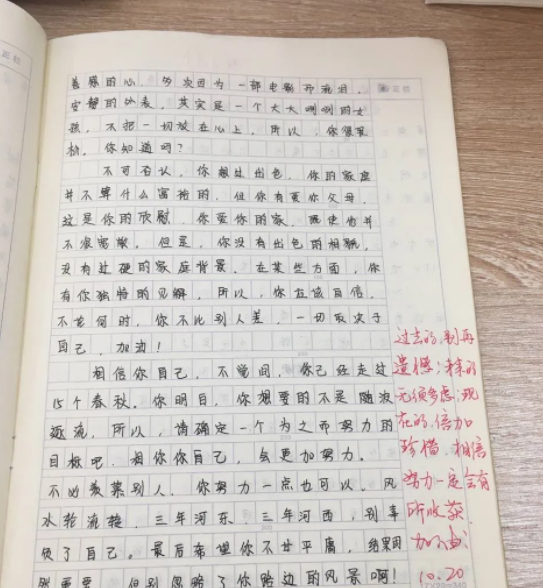 善感的心，多次因为一部电影而流泪，
安静的外表，其实是一个大大咧咧的女
孩，不把一切放在心上，所以，你很累
你知道吗？
不可否认，你想过出色，你的家庭
并不算什么富裕的，但你有爱你父母，
这是你的欣慰，你爱你的家，既使它并
不很富散，但是，你没有出色的相貌，
没有过硬的家庭背景，在某些方面，你
有你独特的见解，所以，你应该自信，
不论何时，你不比别人差，一切取决于
自己，加油！
相信你自己，不觉间，你已经走过
15个春秋，你明白，你想要的不是随波
逐流，所以，请确定一个为之而努力的
目标吧，相你你自己，会更加努力。
不必羡慕别人，你努力一点也可以，风
水轮流转，三年河东，三年河西，别辜
负了自己。最后希望你不甘平庸，结果固
然重要，但别忽略了你路边的风景啊！
过去的，别再
遗憾；未来的
无须考虑；现
在的，倍加
珍惜，相信
努力一定会有
所收获，
加油！
10.20